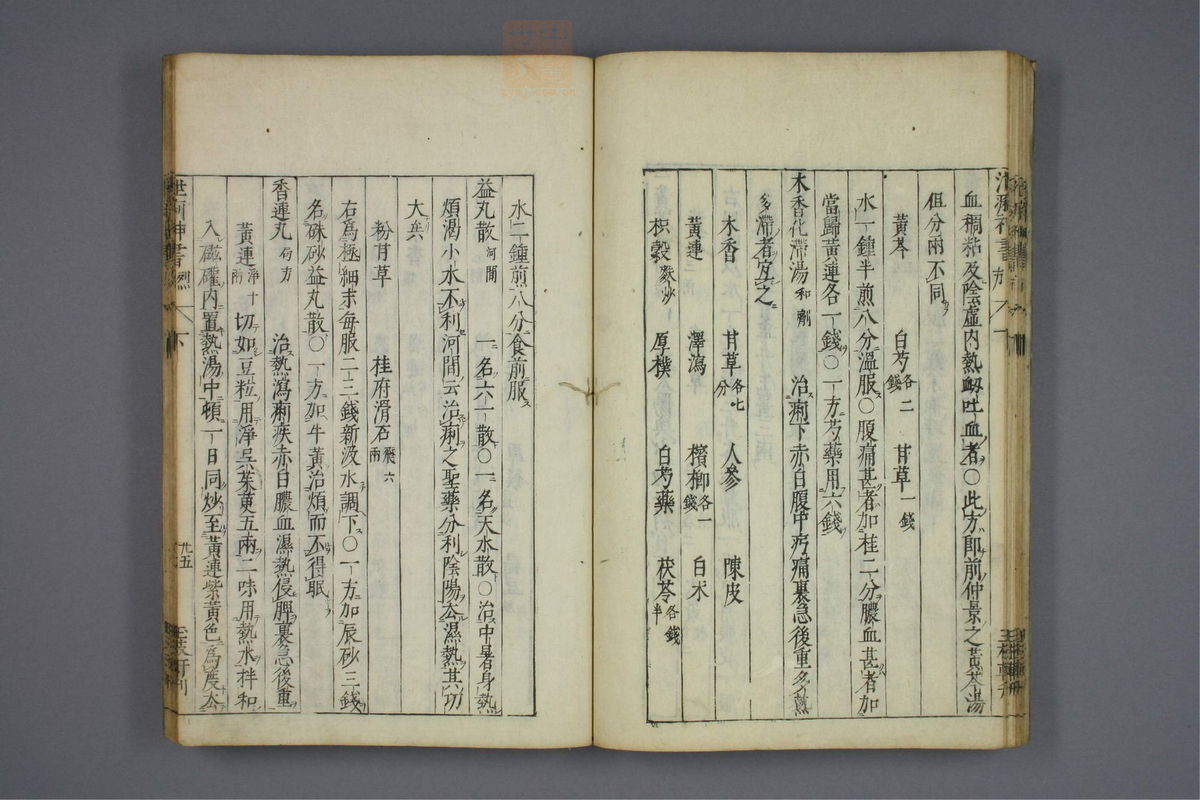 血稠粘及陰虛內熱衂吐血者〇此方卽前仲景之黃芩湯
但分兩不同
黃芩 白芍各二錢 甘草一錢
水一鐘半煎八分溫服〇腹痛甚者加桂二分膿血甚者加
當歸黃連各一錢〇一方芍藥用六錢
木香化滯湯 和劑 治痢下赤白腹中疠痛裏急後重多熱
多滯者宜之
木香 甘草各七分 人參 陳皮
黃連 澤瀉 檳榔各一錢 白朮
枳殼麩炒 厚樸 白芍藥 茯苓各錢半
水二鐘煎八分食前服
益丸散 河間 一名六一散〇一名天水散〇治中暑身熱
煩渴小水不利河間云治痢之聖藥分利陰陽去濕熱其功
大矣
粉甘草 桂府滑石飛六兩
右爲極細末每服二三錢新汲水調下〇一方加辰砂三錢
名硃砂益丸散〇一方加牛黃治煩而不得眠
香連丸 局方 治熱瀉痢疾赤白膿血濕熱侵脾裏急後重
黃連淨十兩 切如豆粒用淨吳茱萸五兩二味用熱水拌和
入磁礶內置熱湯中頓一日同炒至黃連紫黃色爲度去